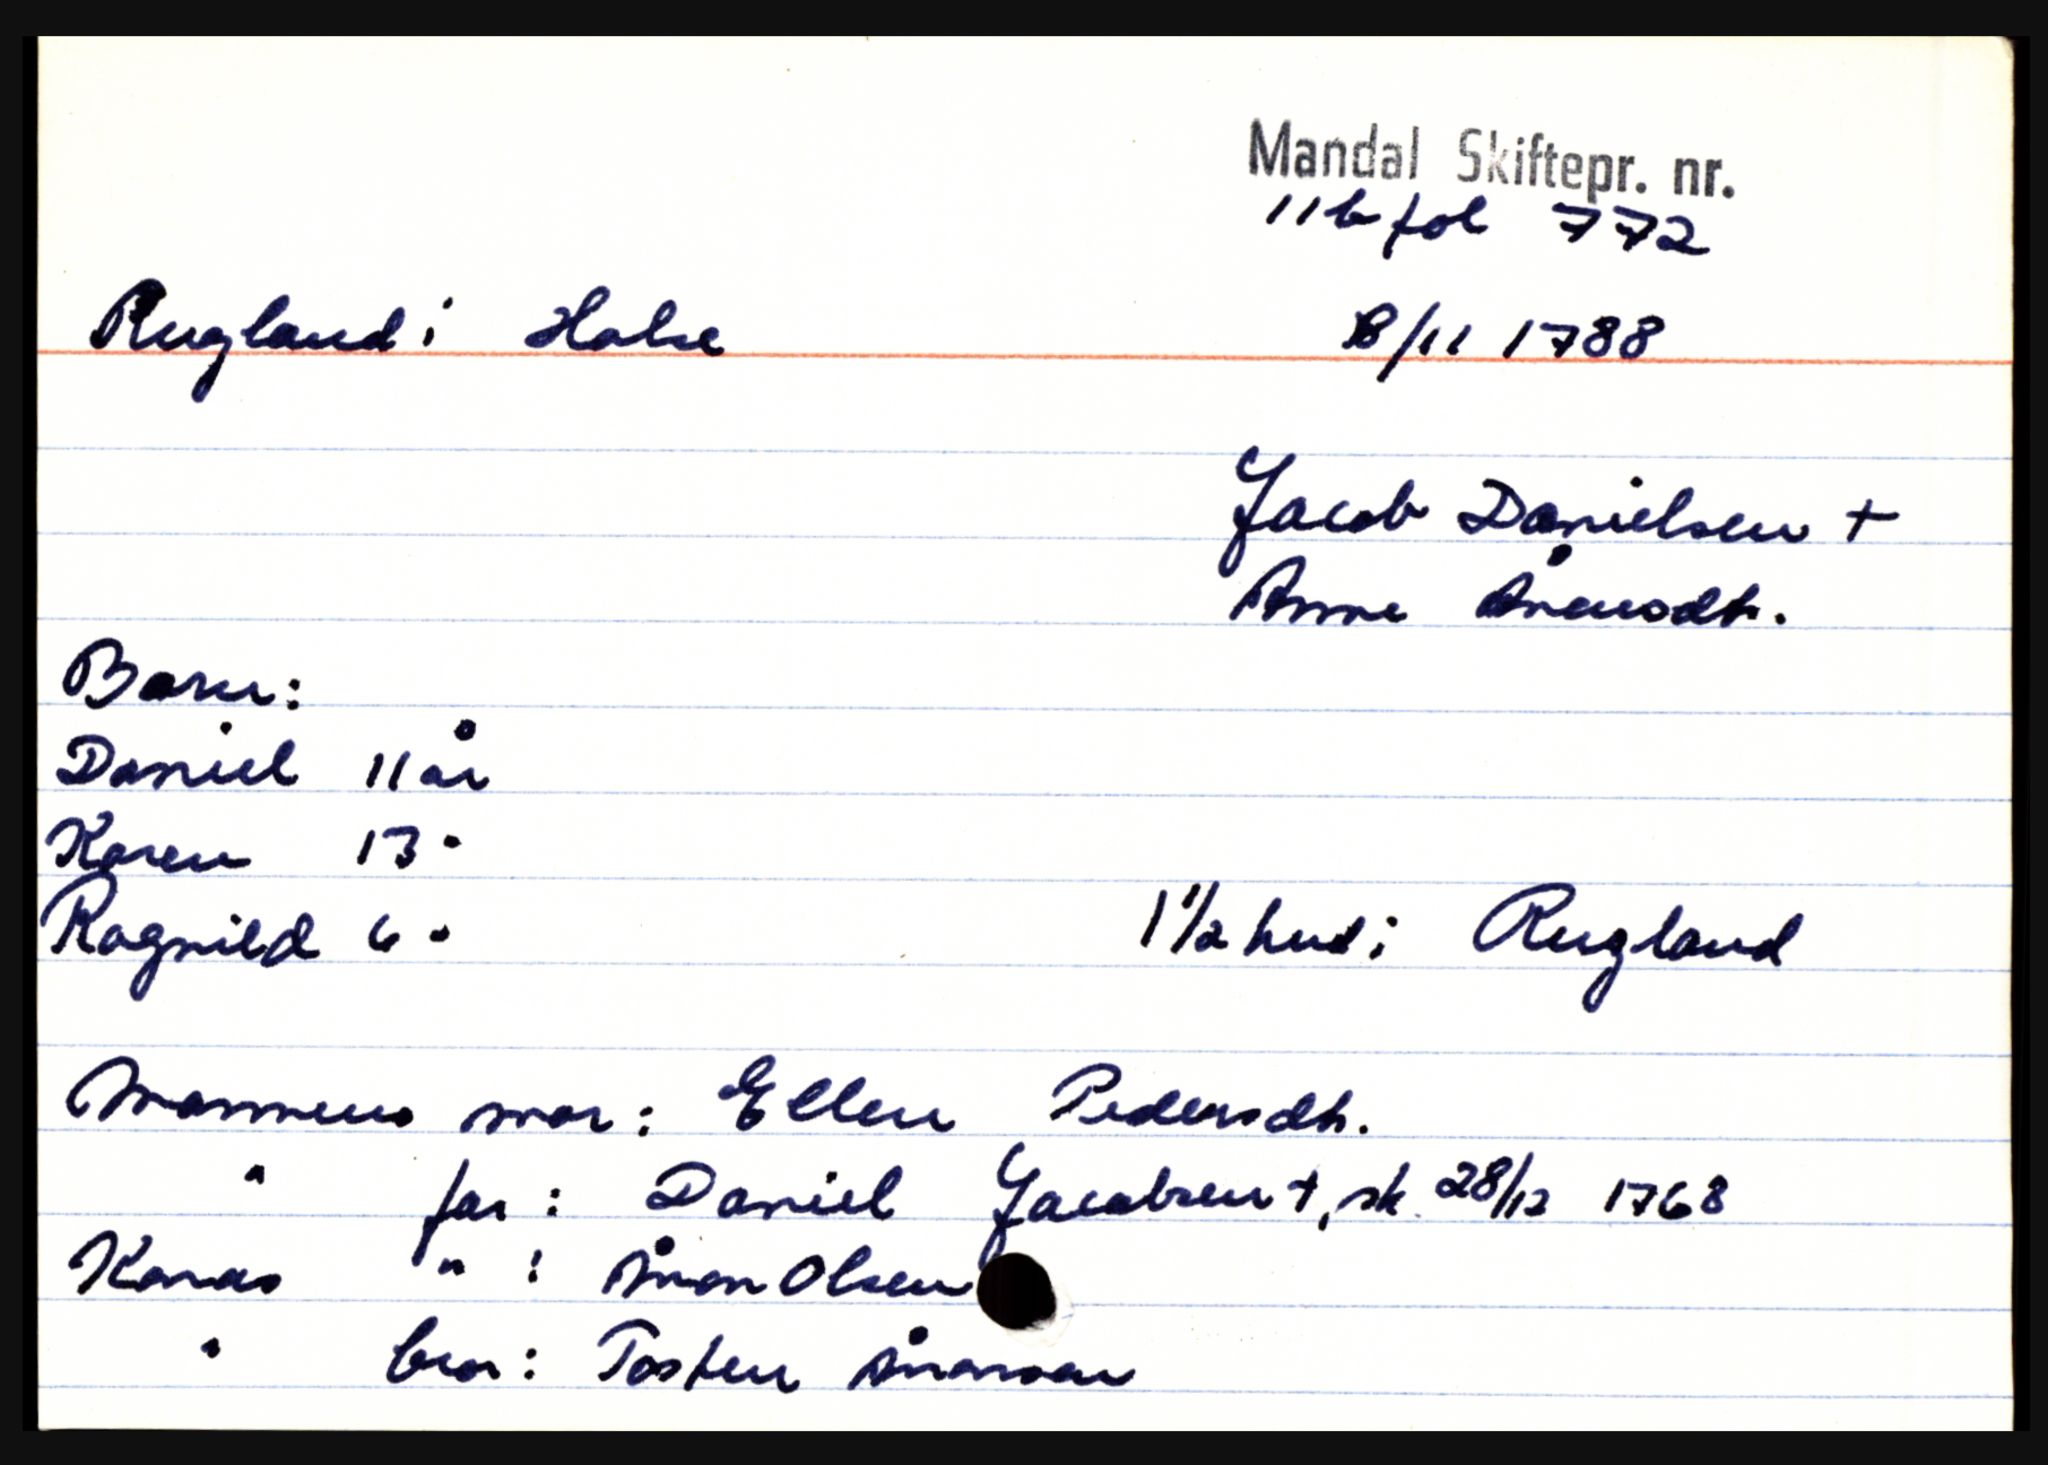 Mandal Skiftepr. nr.
11b fol 772
Rugland i Halse 8/11 1788
Jacob Danielsen +
Anne Ånensdtr.
Barn:
Daniel 11 år
Karen 13 "
Ragnild 6 "
1 1/2 hud i Rugland
Mannens mor: Ellen Pedersdtr.
" far: Daniel Jacobsen +, sk. 28/12 1768
Konas " : Ånon Olsen
" bror: Tosten Ånonsen